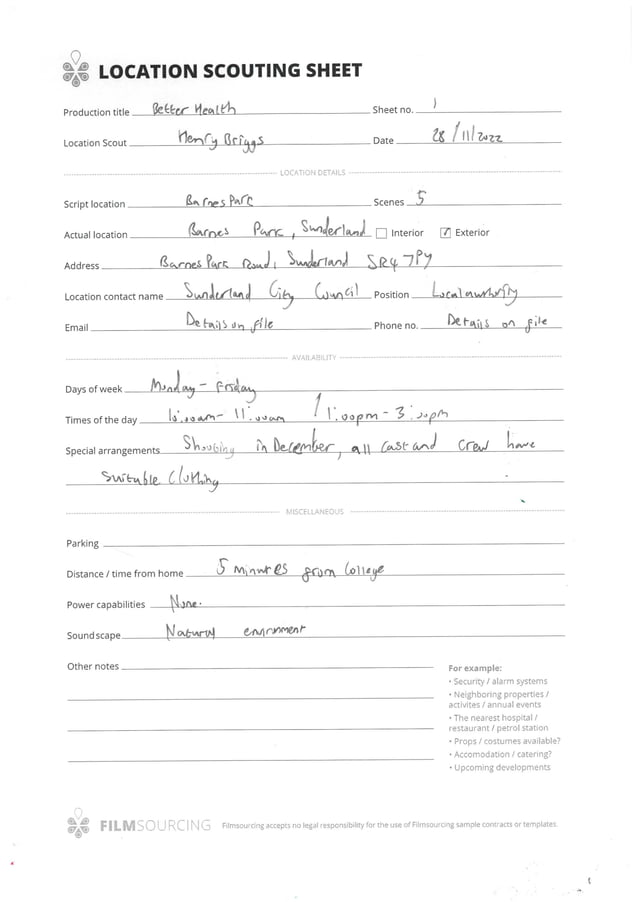 LOCATION SCOUTING SHEET
Production title Better Health Sheet no. 1
Location Scout Henry Briggs Date 28/11/2022
LOCATION DETAILS
Script location Barnes Parc Scenes 5
Actual location Barnes Park, Sunderland Interior ✓ Exterior
Address Barnes Park Road, Sunderland SR4 7PY
Location contact name Sunderland City Council Position Local authority
Email Details on file Phone no. Details on file
AVAILABILITY
Days of week Monday - Friday
Times of the day 10:00am - 11:00am / 1:00pm - 3:00pm
Special arrangements Shooting in December, all cast and crew have
suitable clothing
MISCELLANEOUS
Parking
Distance / time from home 5 minutes from College
Power capabilities None.
Soundscape Natural envirnment
Other notes
For example:
• Security / alarm systems
• Neighboring properties /
activites / annual events
• The nearest hospital /
restaurant / petrol station
• Props / costumes available?
• Accomodation / catering?
• Upcoming developments
FILMSOURCING Filmsourcing accepts no legal responsibility for the use of Filmsourcing sample contracts or templates.